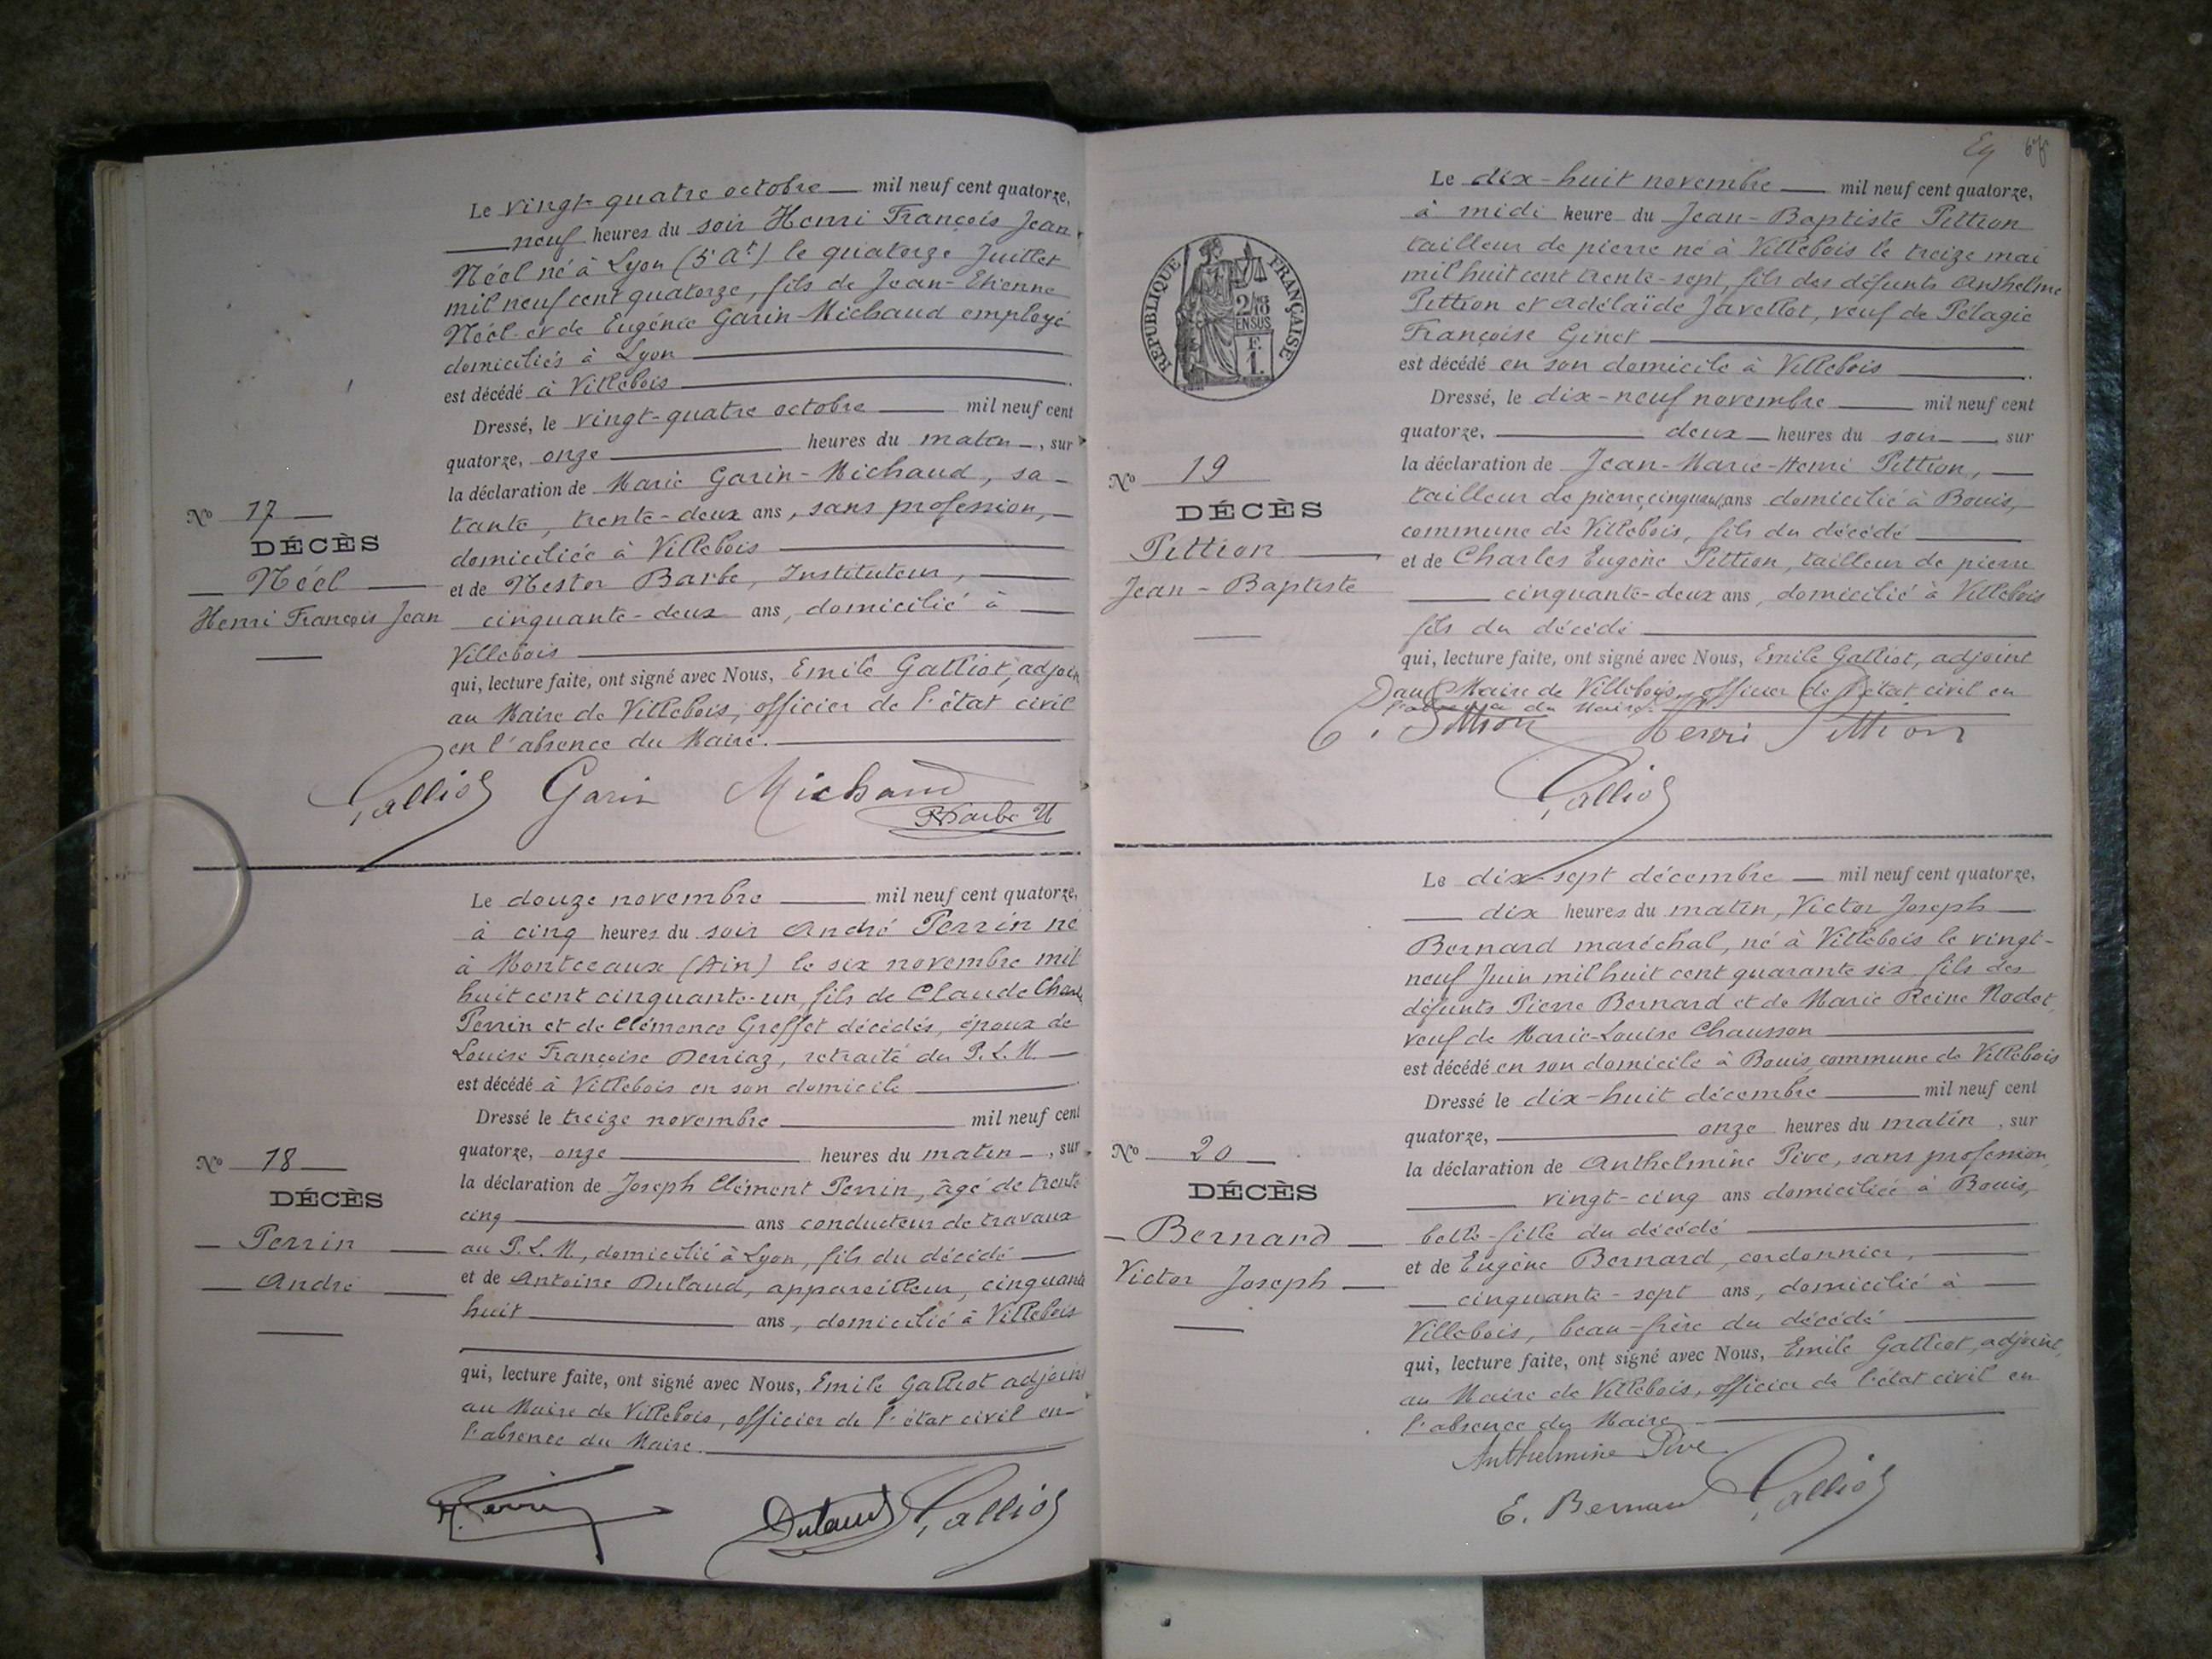 Le vingt-quatre octobre mil neuf cent quatorze,
neuf heures du soir Henri François Jean
Néel né à Lyon (5e At) le quatorze Juillet
mil neuf cent quatorze, fils de Jean-Etienne
Néel et de Eugénie Garin-Michaud employé
domiciliés à Lyon
est décédé à Villebois
Dressé, le vingt-quatre octobre mil neuf cent
quatorze, onze heures du matin, sur
la déclaration de Marie Garin-Michaud, sa
tante, trente-deux ans, sans profession,
domiciliée à Villebois
et de Nestor Barbe, Instituteur,
cinquante-deux ans, domicilié à
Villebois
qui, lecture faite, ont signé avec Nous, Emile Galliot, adjoin
au Maire de Villebois, officier de l'état civil
en l'absence du Maire.
Galliot Garin Michaud
Barbe N
No 17
DÉCÈS
Néel
Henri François Jean
Le douze novembre mil neuf cent quatorze,
à cinq heures du soir André Perrin né
à Montceaux (Ain) le six novembre mil
huit cent cinquante-un, fils de Claude Charles
Perrin et de Clémence Greffet décédés, époux de
Louise Françoise Derriaz, retraité du P.L.M.
est décédé à Villebois en son domicile
Dressé le treize novembre mil neuf cent
quatorze, onze heures du matin, sur
la déclaration de Joseph Clément Perrin, âgé de trente
cinq ans conducteur de travaux
au P.L.M, domicilié à Lyon, fils du décédé
et de Antoine Dutaud, appareilleur, cinquante
huit ans, domicilié à Villebois
qui, lecture faite, ont signé avec Nous, Emile Galliot adjoint
au Maire de Villebois, officier de l'état civil en
l'absence du Maire.
Perrin Dutaud Galliot
No 18
DÉCÈS
Perrin
André
Le dix-huit novembre mil neuf cent quatorze,
à midi heure du Jean-Baptiste Pittion
tailleur de pierre né à Villebois le treize mai
mil huit cent trente-sept, fils des défunts Anthelme
Pittion et Adélaïde Javellot, veuf de Pélagie
Françoise Ginet
est décédé en son domicile à Villebois
Dressé, le dix-neuf novembre mil neuf cent
quatorze, deux heures du soir, sur
la déclaration de Jean-Marie-Henri Pittion,
tailleur de pierre, cinquante ans domicilié à Bouis,
commune de Villebois, fils du décédé
et de Charles Eugène Pittion, tailleur de pierre
cinquante-deux ans, domicilié à Villebois
fils du décédé
qui, lecture faite, ont signé avec Nous, Emile Galliot, adjoint
au Maire de Villebois, officier de l'état civil en
l'absence du Maire.
C. Pittion Henri Pittion
Galliot
RÉPUBLIQUE FRANÇAISE
2/10
EN SUS
F.
1.
No 19
DÉCÈS
Pittion
Jean-Baptiste
Le dix-sept décembre mil neuf cent quatorze,
dix heures du matin, Victor Joseph
Bernard maréchal, né à Villebois le vingt-
neuf Juin mil huit cent quarante six fils des
défunts Pierre Bernard et de Marie Reine Nodet,
veuf de Marie-Louise Chausson
est décédé en son domicile à Bouis, commune de Villebois
Dressé le dix-huit décembre mil neuf cent
quatorze, onze heures du matin, sur
la déclaration de Anthelmine Pive, sans profession,
vingt-cinq ans domiciliée à Bouis,
belle-fille du décédé
et de Eugène Bernard, cordonnier,
cinquante-sept ans, domicilié à
Villebois, beau-frère du décédé
qui, lecture faite, ont signé avec Nous, Emile Galliot, adjoint,
au Maire de Villebois, officier de l'état civil en
l'absence du Maire
Anthelmine Pive
E. Bernard Galliot
No 20
DÉCÈS
Bernard
Victor Joseph